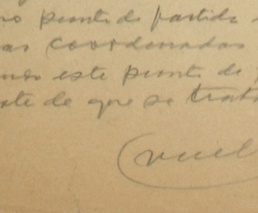 no punto de partida
as coordenadas
este punto de
te de que se trata
(vuel